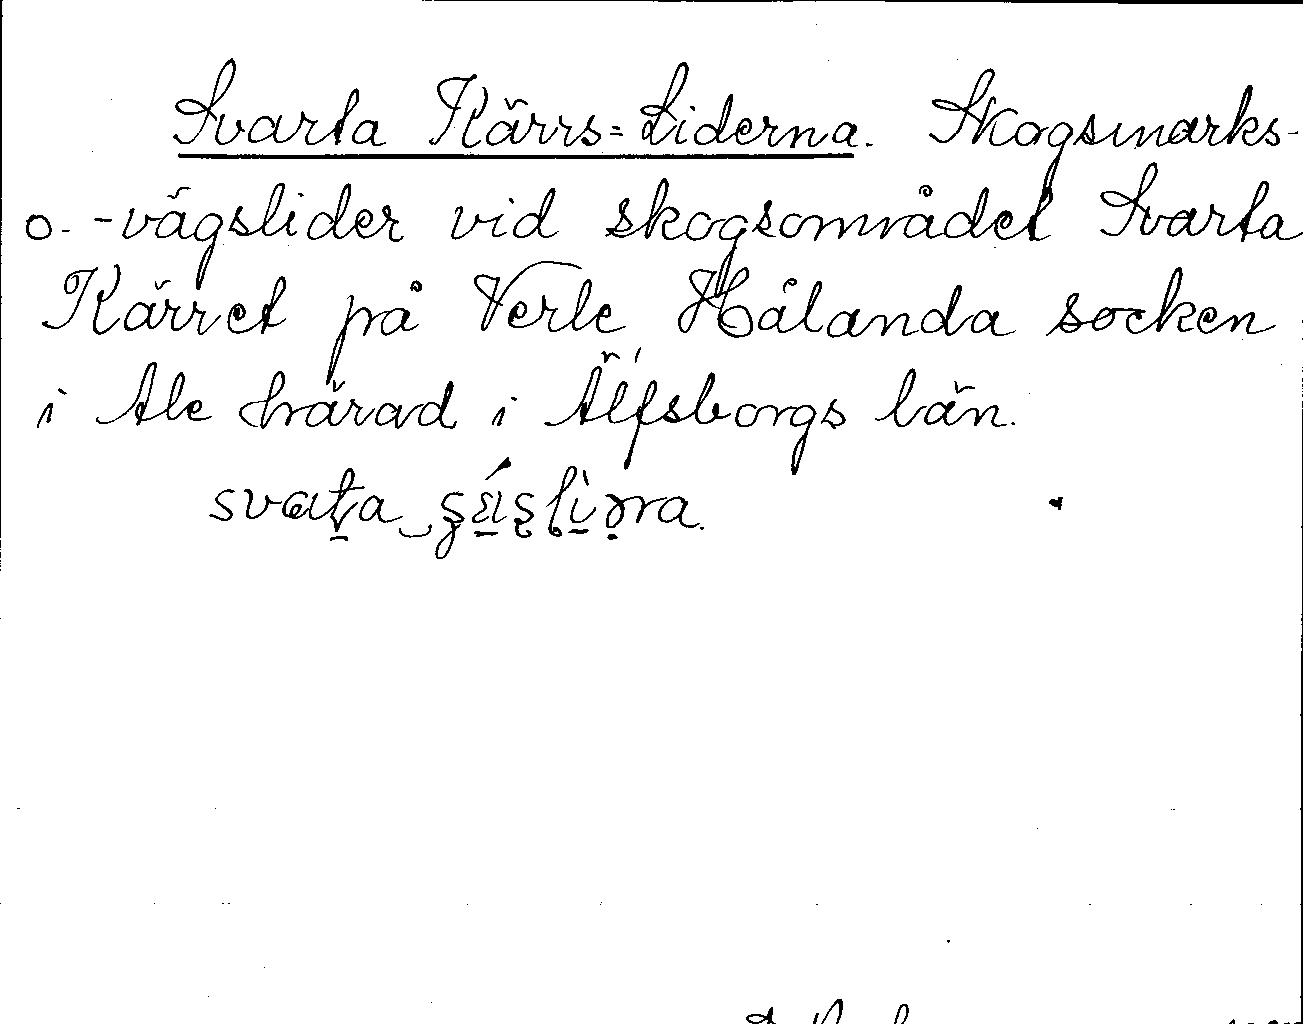 Svarta Kärrs=Liderna. Skogsmarks-
o. -vägslider vid skogsområdet Svarta
Kärret på Verle Hålanda socken
i Ale härad i Älfsborgs län.